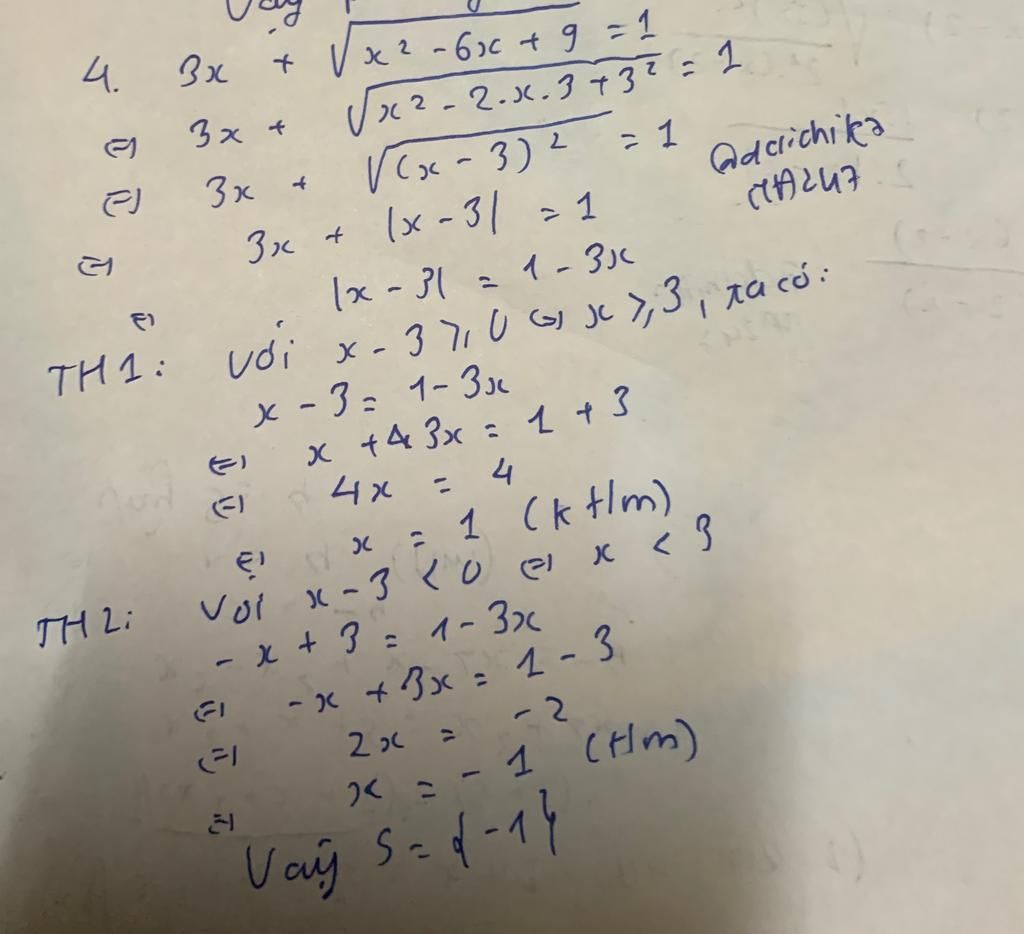 4. 3x + √(x² - 6x + 9) = 1
⇔ 3x + √(x² - 2.x.3 + 3²) = 1
⇔ 3x + √((x - 3)²) = 1
@darichika
⇔ 3x + |x - 3| = 1
⇔ |x - 3| = 1 - 3x
TH1: Với x - 3 ≥ 0 ⇔ x ≥ 3, ta có:
x - 3 = 1 - 3x
⇔ x + 3x = 1 + 3
⇔ 4x = 4
⇔ x = 1 (k t/m)
TH2: Với x - 3 < 0 ⇔ x < 3
- x + 3 = 1 - 3x
⇔ - x + 3x = 1 - 3
⇔ 2x = - 2
⇔ x = - 1 (t/m)
Vậy S = {-1}